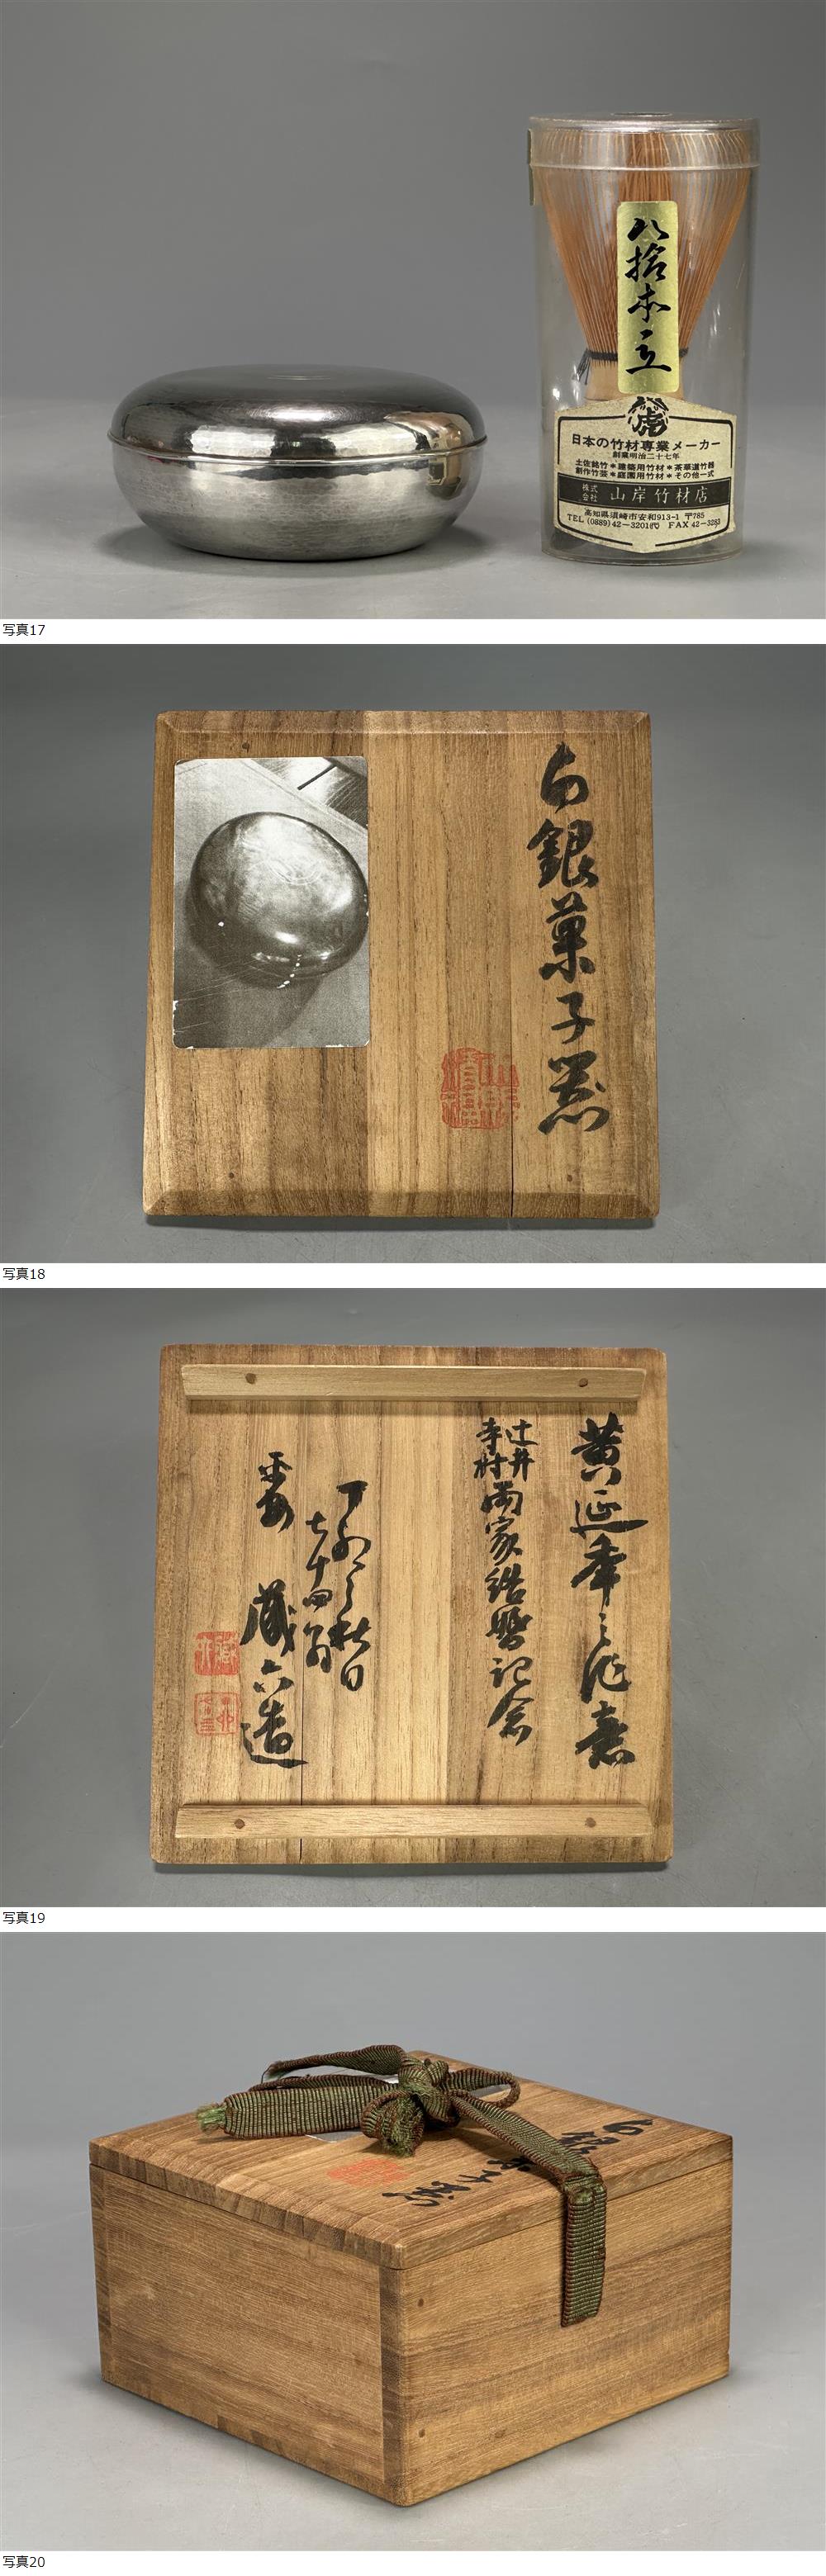 八拾本立
虎
日本の竹材専業メーカー
創業明治二十七年
土佐銘竹＊建築用竹材＊茶華道竹器
創作竹芸＊庭園用竹材＊その他一式
株式会社 山岸竹材店
高知県須崎市安和913-1 〒785
TEL (0889)42-3201㈹ FAX 42-3283
写真17
白銀菓子器
写真18
黄延年之作意
辻井
寺村
両家結婚記念
丁卯之秋日
七十四翁
平安 蔵六造
写真19
白銀
子器
写真20